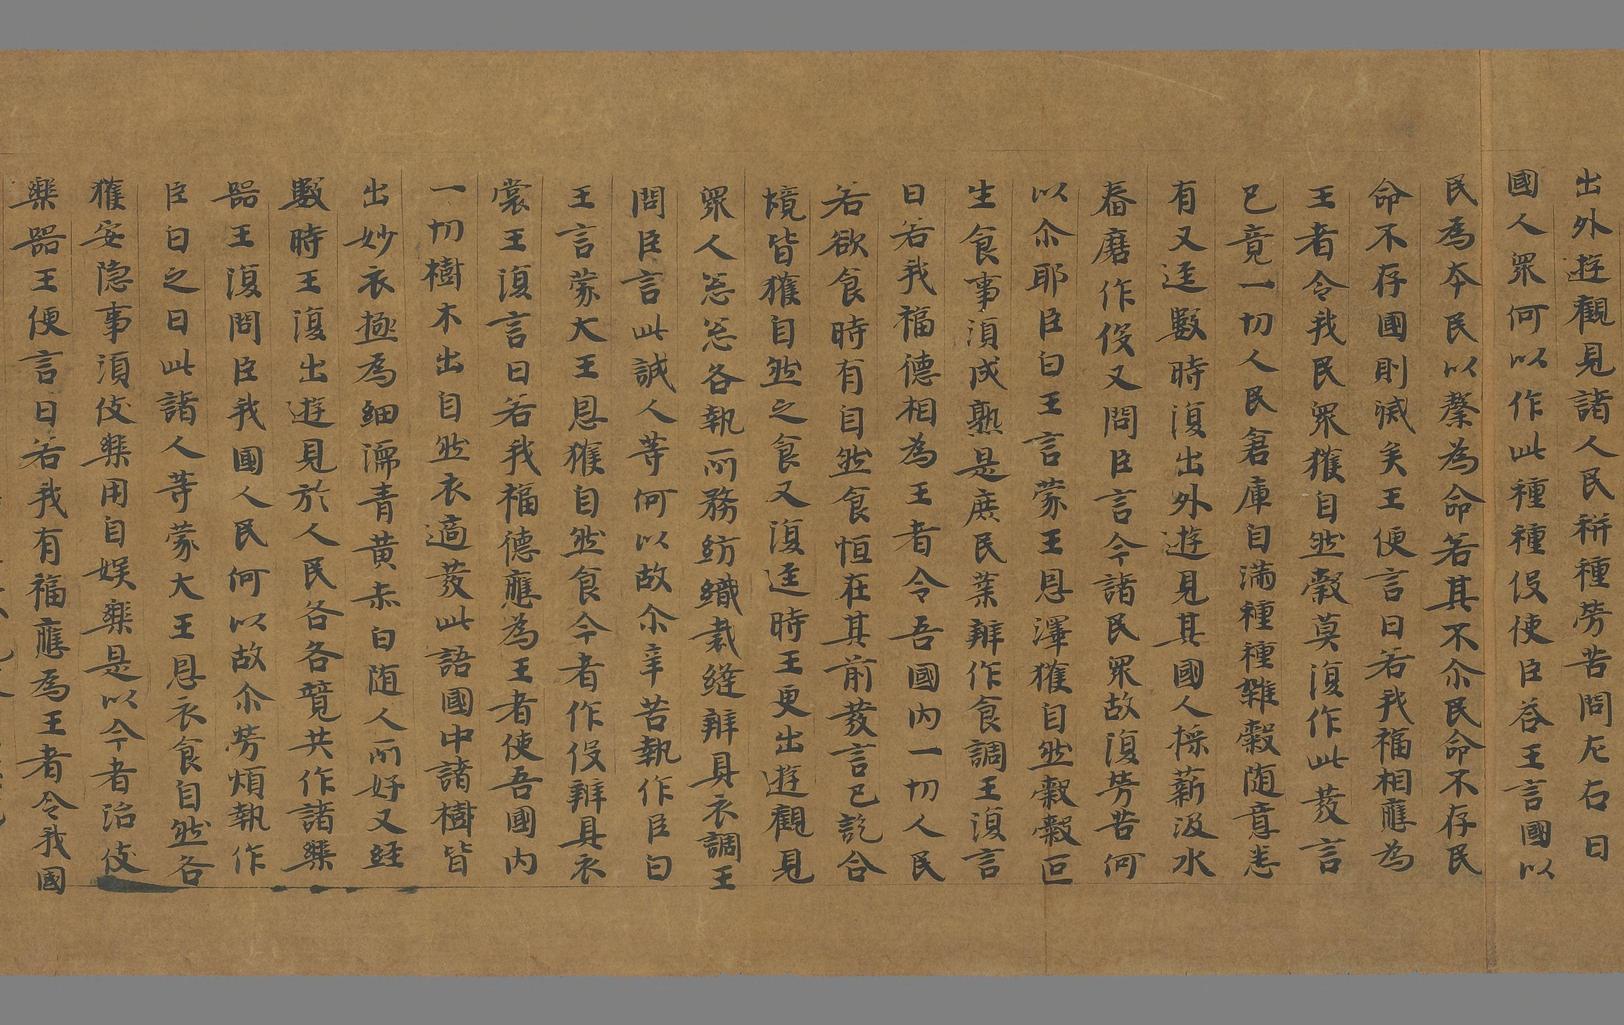 出外遊觀見諸人民耕種勞苦問左右曰
國人眾何以作此種種役使臣答王言國以
民為本民以穀為命若其不尒民命不存民
命不存國則滅矣王便言曰若我福相應為
王者令我民眾獲自然穀莫復作此發言
已竟一切人民倉庫自滿種種雜穀隨意悉
有又逕數時復出外遊見其國人採薪汲水
舂磨作役又問臣言今諸民眾故復勞苦何
以尒耶臣白王言蒙王恩澤獲自然穀穀叵
生食事須成熟是庶民業辦作食調王復言
曰若我福德相為王者令吾國內一切人民
若欲食時有自然食恒在其前發言已訖合
境皆獲自然之食又復逕時王更出遊觀見
眾人忩忩各執所務紡織裁縫辦具衣調王
問臣言此誠人等何以故尒辛苦執作臣白
王言蒙大王恩獲自然食今者作役辦具衣
裳王復言曰若我福德應為王者使吾國內
一切樹木出自然衣適發此語國中諸樹皆
出妙衣極為細濡青黃赤白隨人所好又經
數時王復出遊見於人民各各競共作諸樂
器王復問臣我國人民何以故尒勞煩執作
臣白之曰此諸人等蒙大王恩衣食自然各
獲安隱事須伎樂用自娛樂是以今者治伎
樂器王便言曰若我有福應為王者令我國